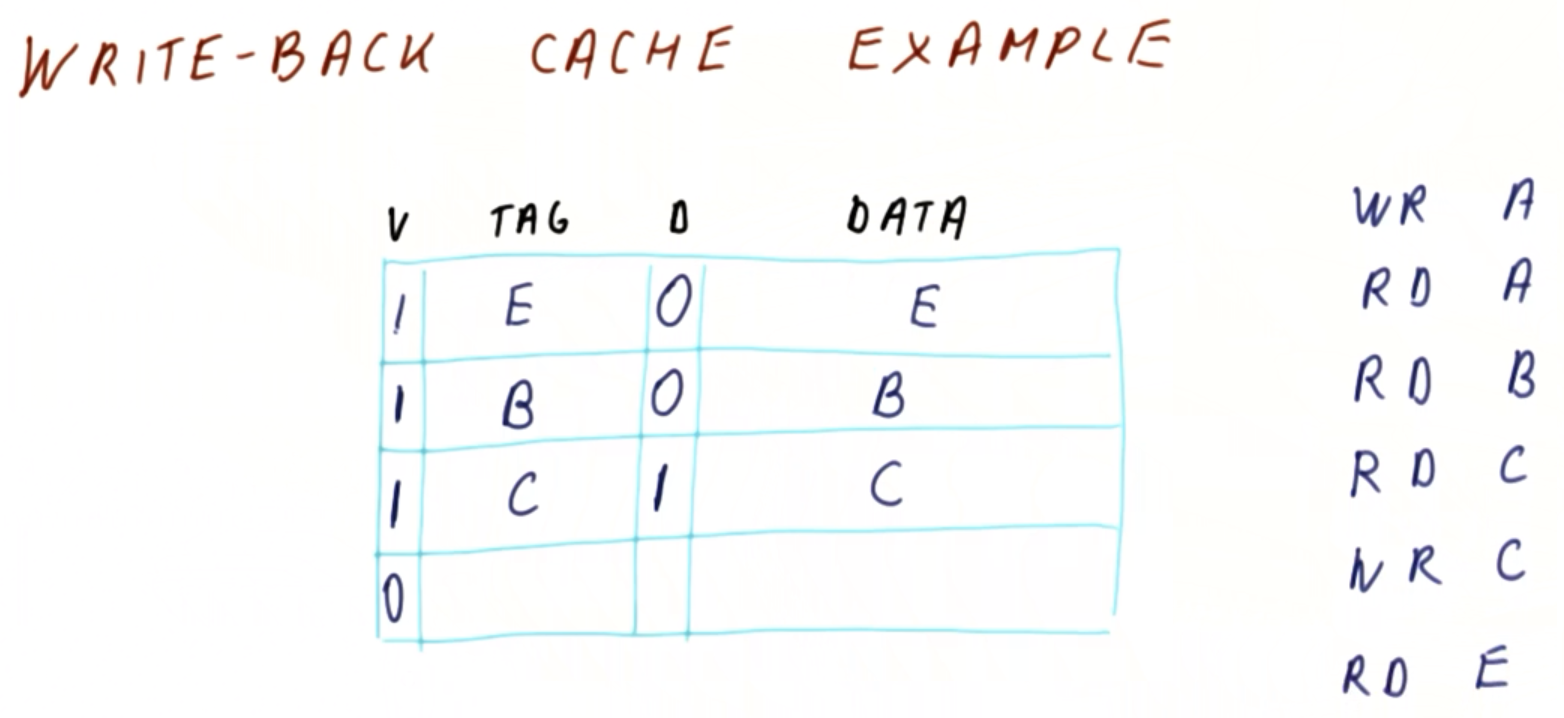 WRITE-BACK CACHE EXAMPLE
V TAG D DATA
1 E 0 E
1 B 0 B
1 C 1 C
0
WR A
RD A
RD B
RD C
WR C
RD E